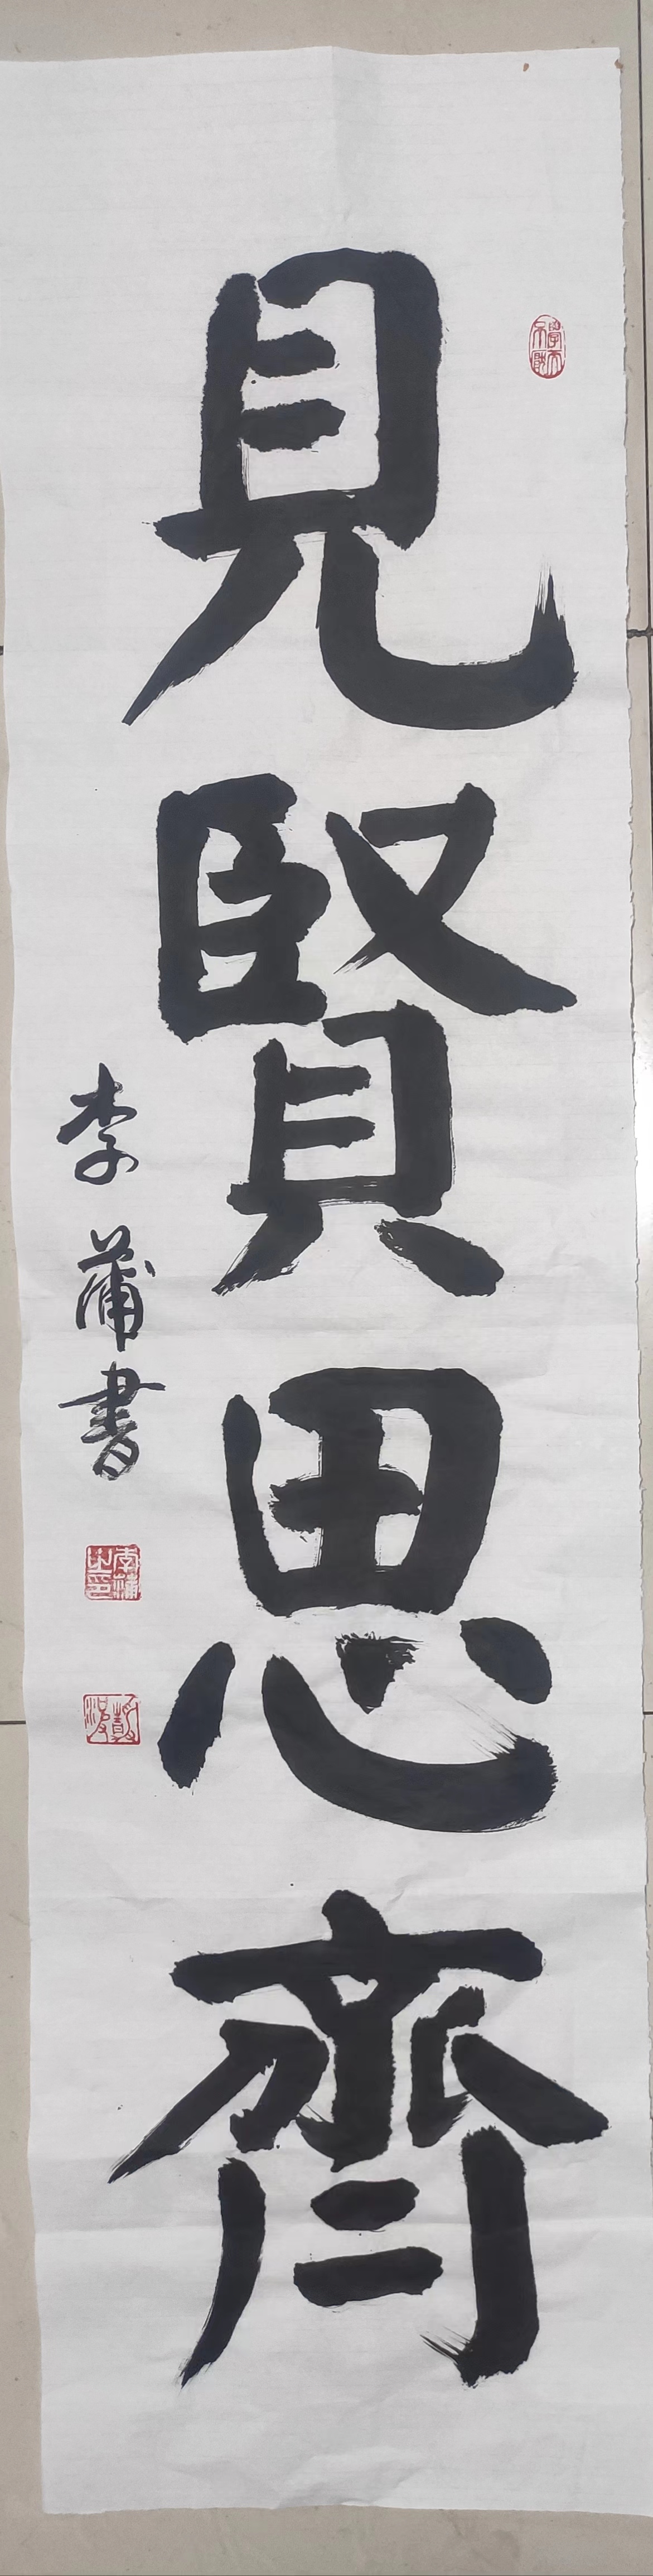 見賢思齊
李蒲書